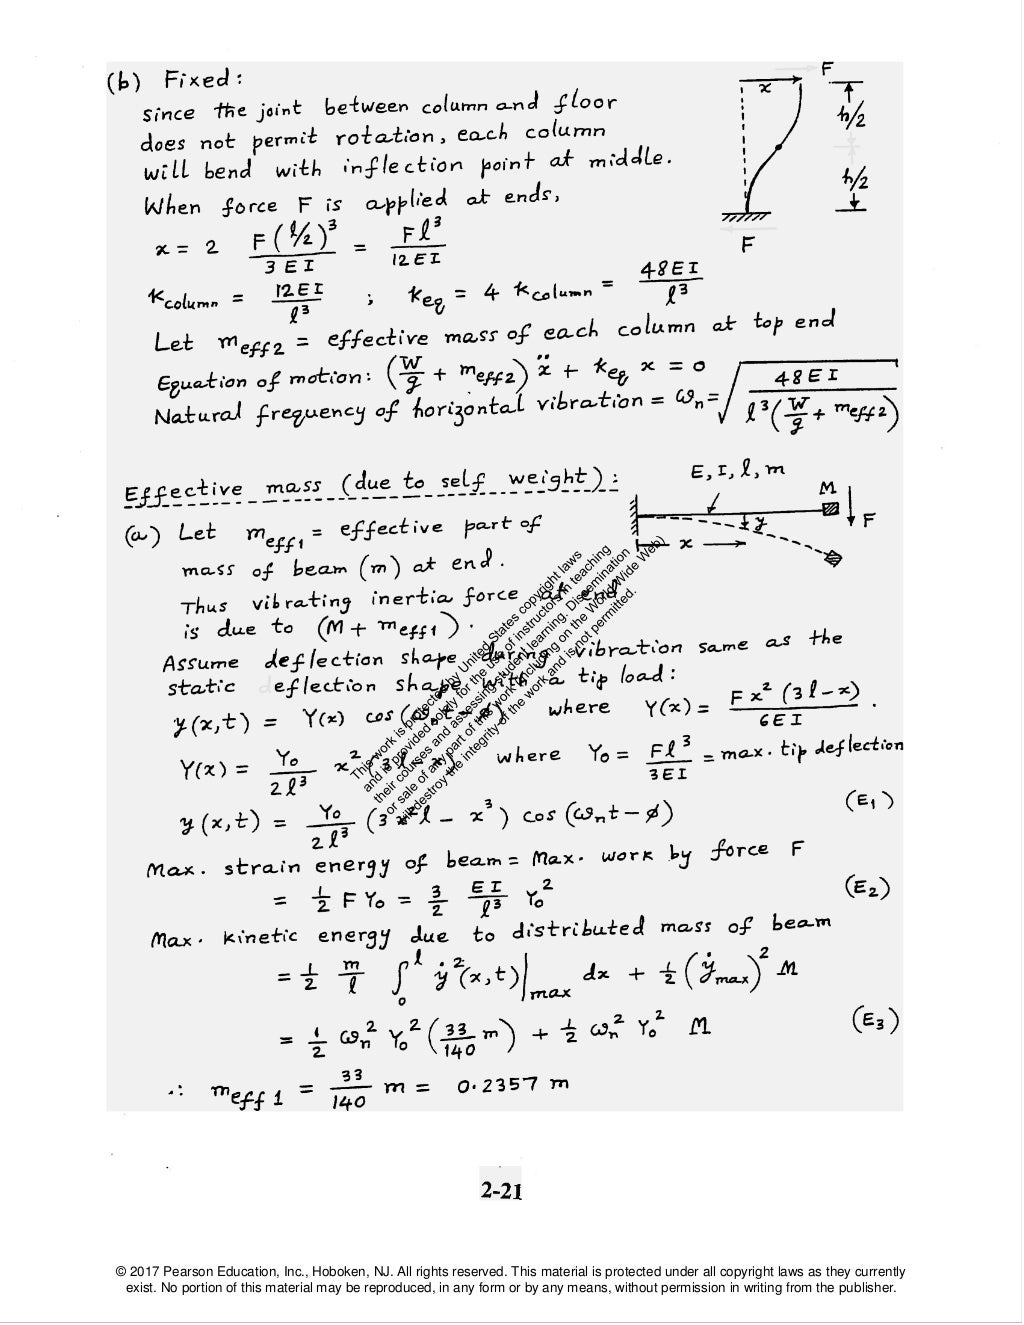 (b) Fixed:
since the joint between column and floor
does not permit rotation, each column
will bend with inflection point at middle.
When force F is applied at ends,
x = 2 F(l/2)³ / 3EI = Fl³ / 12EI
k_column = 12EI / l³ ; k_eq = 4 k_column = 48EI / l³
F
x
h/2
h/2
F
Let m_eff2 = effective mass of each column at top end
Equation of motion: (W/g + m_eff2) ẍ + k_eq x = 0
Natural frequency of horizontal vibration = ω_n = √(48EI / l³(W/g + m_eff2))
Effective mass (due to self weight):
(a) Let m_eff1 = effective part of
mass of beam (m) at end.
Thus vibrating inertia force at end
is due to (M + m_eff1).
E, I, l, m
M
F
y
x
Assume deflection shape during vibration same as the
static deflection shape with a tip load:
y(x,t) = Y(x) cos( where Y(x) = Fx²(3l-x) / 6EI .
Y(x) = Y₀ / 2l³ x² where Y₀ = Fl³ / 3EI = max. tip deflection
y(x,t) = Y₀ / 2l³ (3x²l - x³) cos(ω_n t - φ) (E₁)
Max. strain energy of beam = Max. work by force F
= ½ F Y₀ = 3/2 EI/l³ Y₀² (E₂)
Max. kinetic energy due to distributed mass of beam
= ½ m/l ∫₀ˡ ẏ²(x,t)|max dx + ½ (ẏmax)² M
= ½ ω_n² Y₀² (33/140 m) + ½ ω_n² Y₀² M (E₃)
∴ m_eff 1 = 33/140 m = 0.2357 m
This work is protected by United States copyright laws
and is provided solely for the use of instructors in teaching
their courses and assessing student learning. Dissemination
or sale of any part of this work (including on the World Wide Web)
will destroy the integrity of the work and is not permitted.
2-21
© 2017 Pearson Education, Inc., Hoboken, NJ. All rights reserved. This material is protected under all copyright laws as they currently
exist. No portion of this material may be reproduced, in any form or by any means, without permission in writing from the publisher.